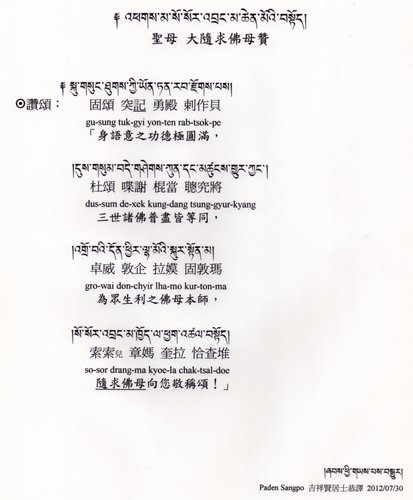 ༄ འཕགས་མ་སོ་སོར་འབྲང་མ་ཆེན་མོའི་བསྟོད།
聖母 大隨求佛母贊
༄ སྐུ་གསུང་ཐུགས་ཀྱི་ཡོན་ཏན་རབ་རྫོགས་པས།
⊙讚頌： 固頌 突記 勇殿 剌作貝
gu-sung tuk-gyi yon-ten rab-tsok-pe
「身語意之功德極圓滿，
།དུས་གསུམ་བདེ་གཤེགས་ཀུན་དང་མཚུངས་གྱུར་ཀྱང་།
杜頌 喋謝 棍當 聰究將
dus-sum de-xek kung-dang tsung-gyur-kyang
三世諸佛普盡皆等同，
།འགྲོ་བའི་དོན་ཕྱིར་ལྷ་མོའི་སྐུར་སྟོན་མ།
卓威 敦企 拉嫫 固敦瑪
gro-wai don-chyir lha-mo kur-ton-ma
為眾生利之佛母本師，
།སོ་སོར་འབྲང་མ་ཁྱོད་ལ་ཕྱག་འཚལ་བསྟོད།
索索兒 章媽 奎拉 恰查堆
so-sor drang-ma kyoe-la chak-tsal-doe
隨求佛母向您敬稱頌！」
།ཞབས་ཕྱི་གཡས་པས་བསྒྱུར།
Paden Sangpo 吉祥賢居士恭譯 2012/07/30